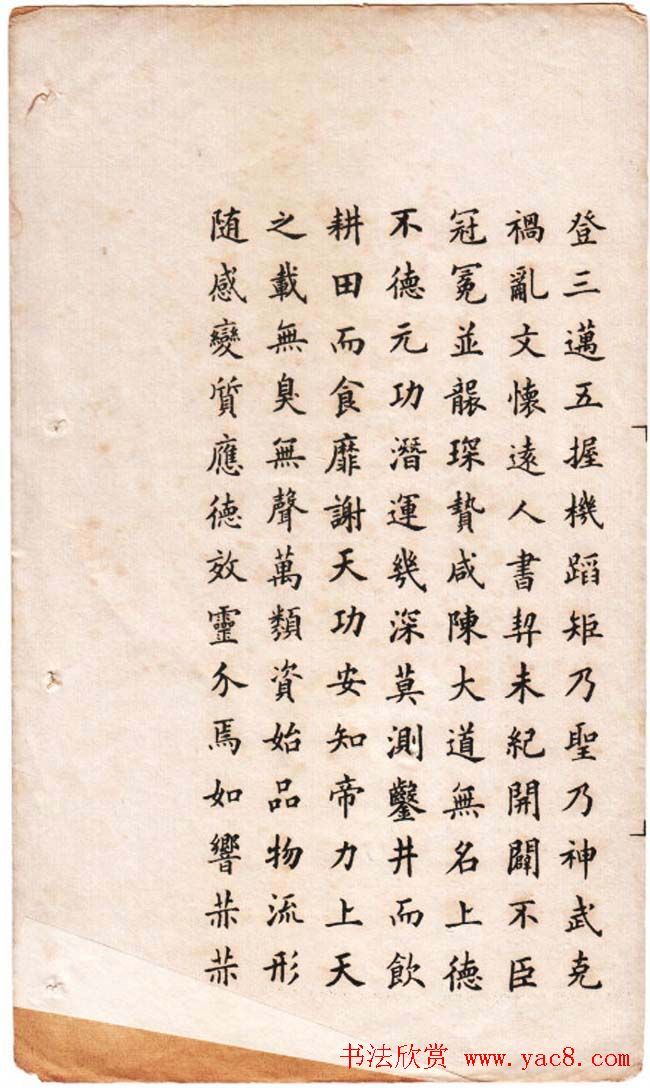 登三邁五握機蹈矩乃聖乃神武克
禍亂文懷遠人書契未紀開闢不臣
冠冕並襲琛贄咸陳大道無名上德
不德元功潛運幾深莫測鑿井而飲
耕田而食靡謝天功安知帝力上天
之載無臭無聲萬類資始品物流形
随感變質應德效靈介焉如響赫赫
书法欣赏 www.yac8.com